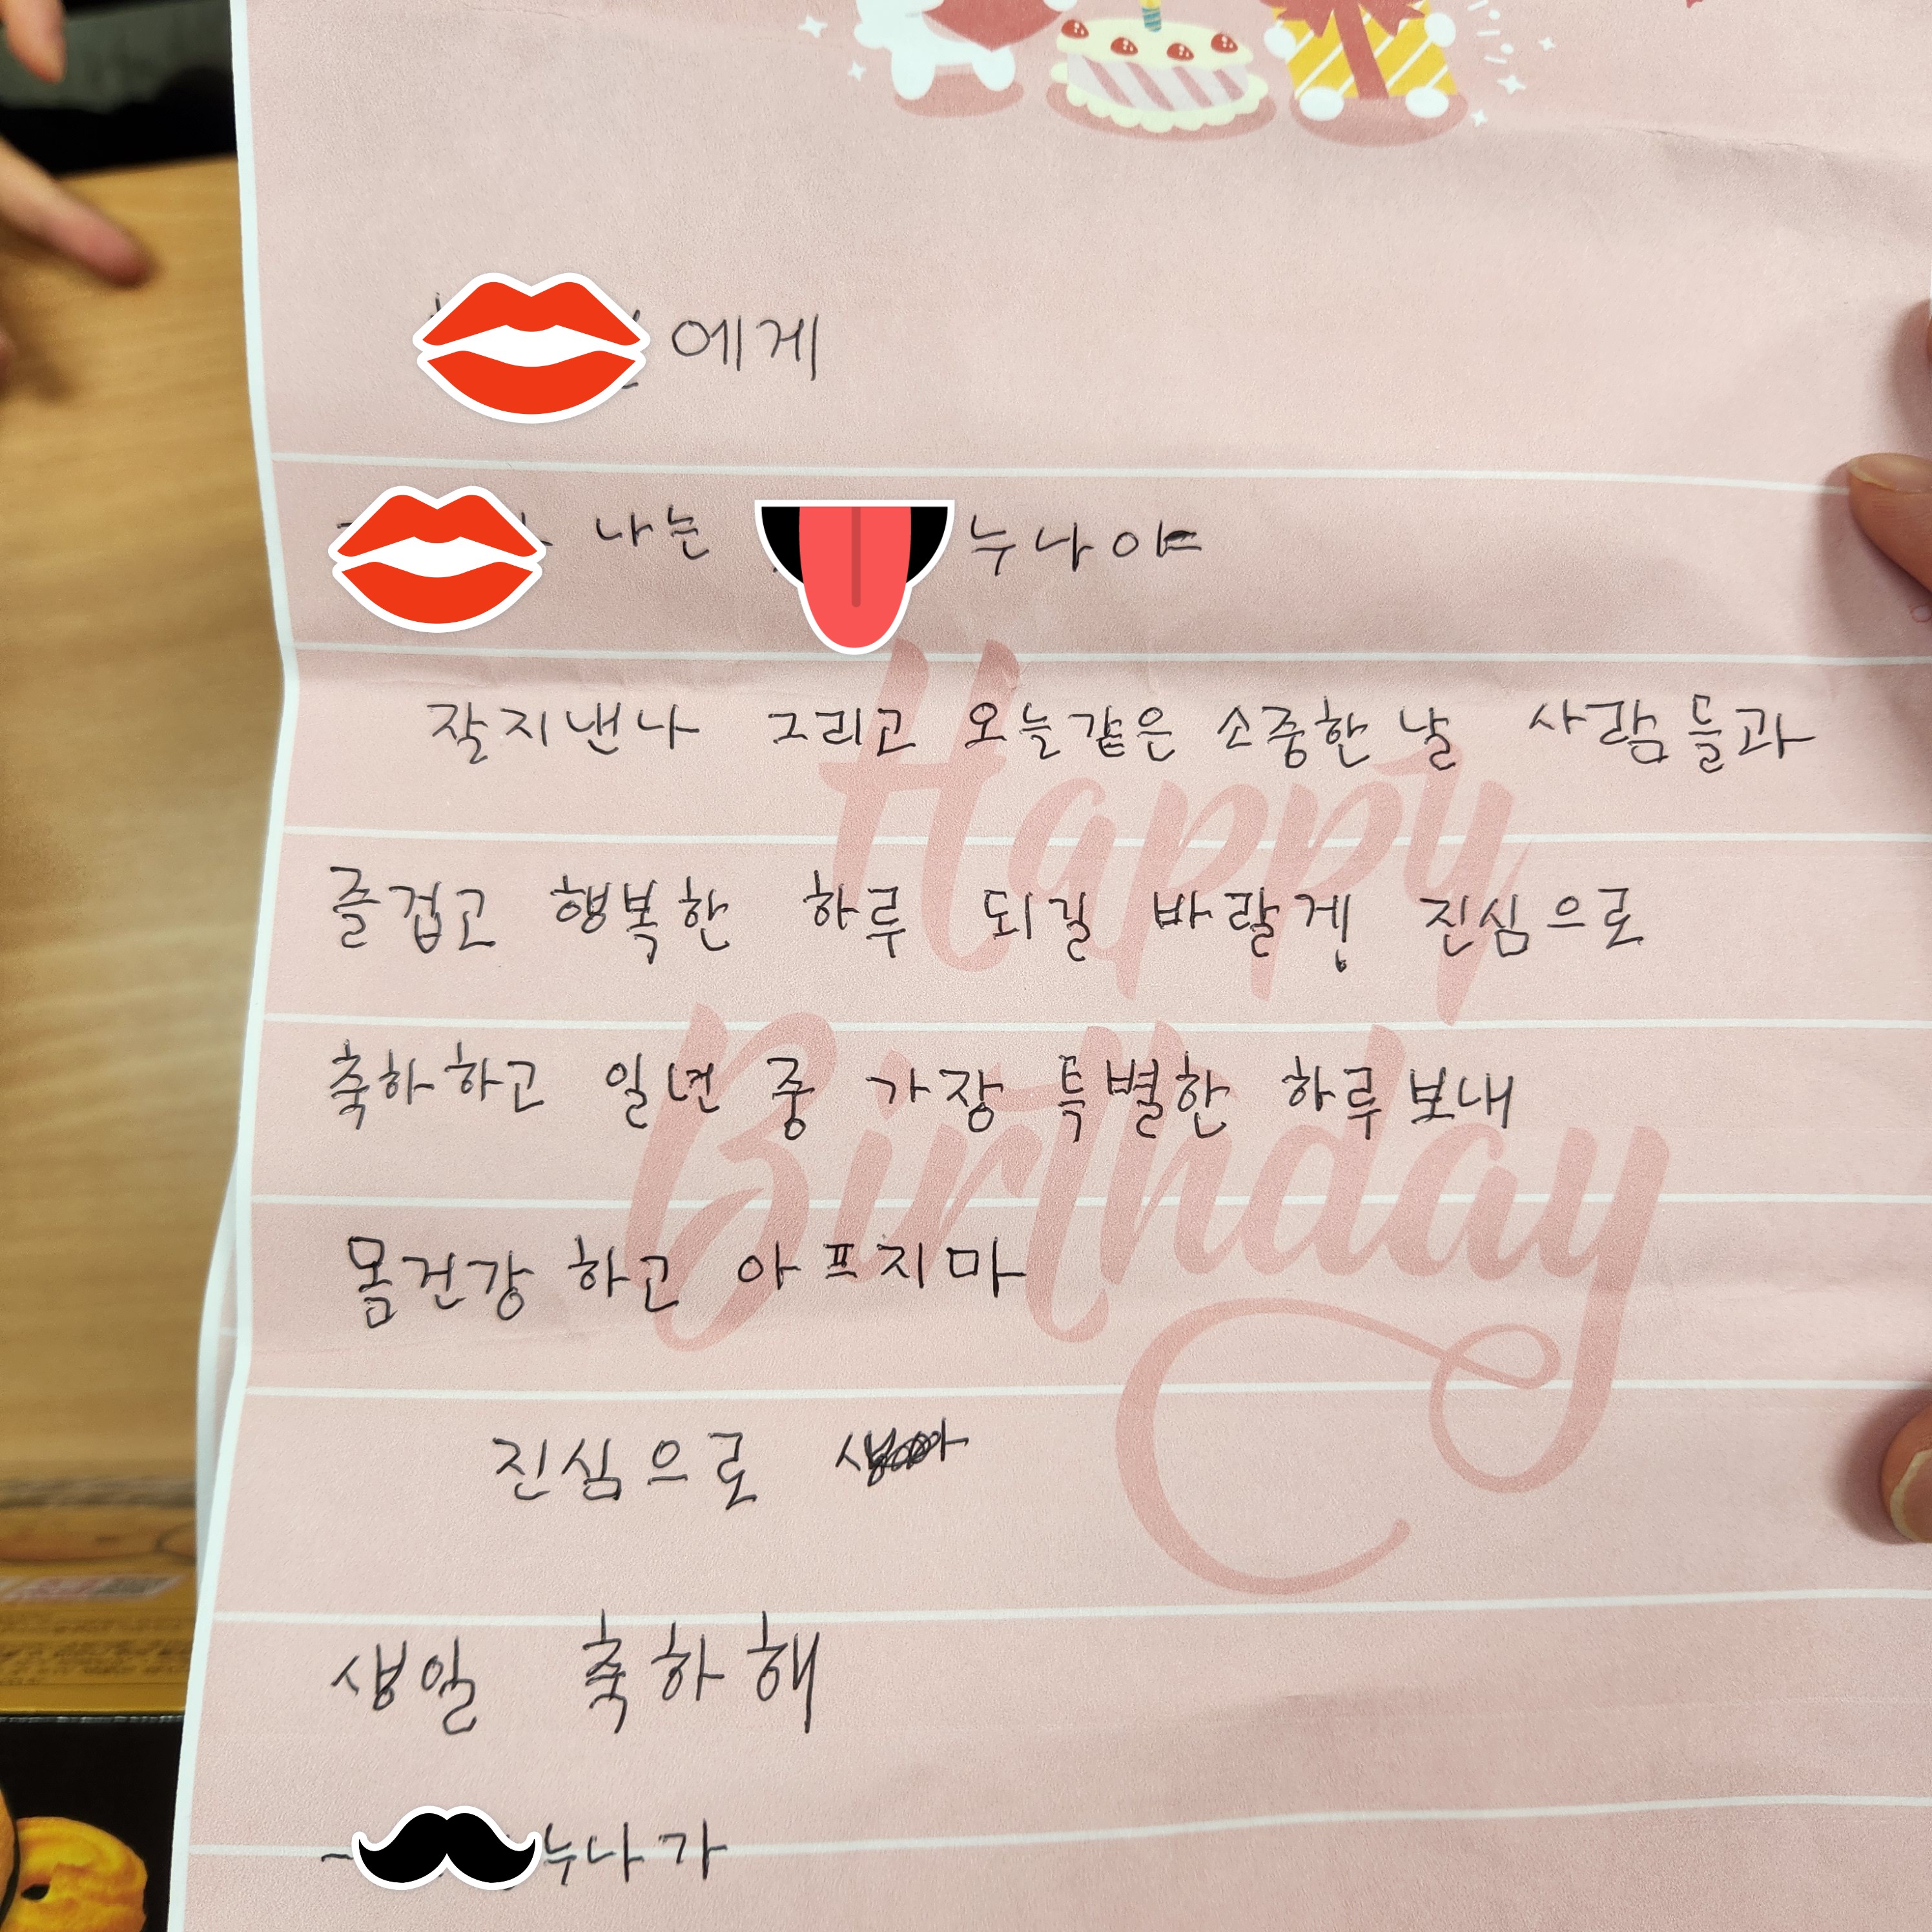 에게
나는 누나야
잘지낸나 그리고 오늘같은 소중한 날 사람들과
즐겁고 행복한 하루 되길 바랄겡 진심으로
축하하고 일년 중 가장 특별한 하루보내
몸건강 하고 아프지마
진심으로
생일 축하해
누나가
Happy
Birthday